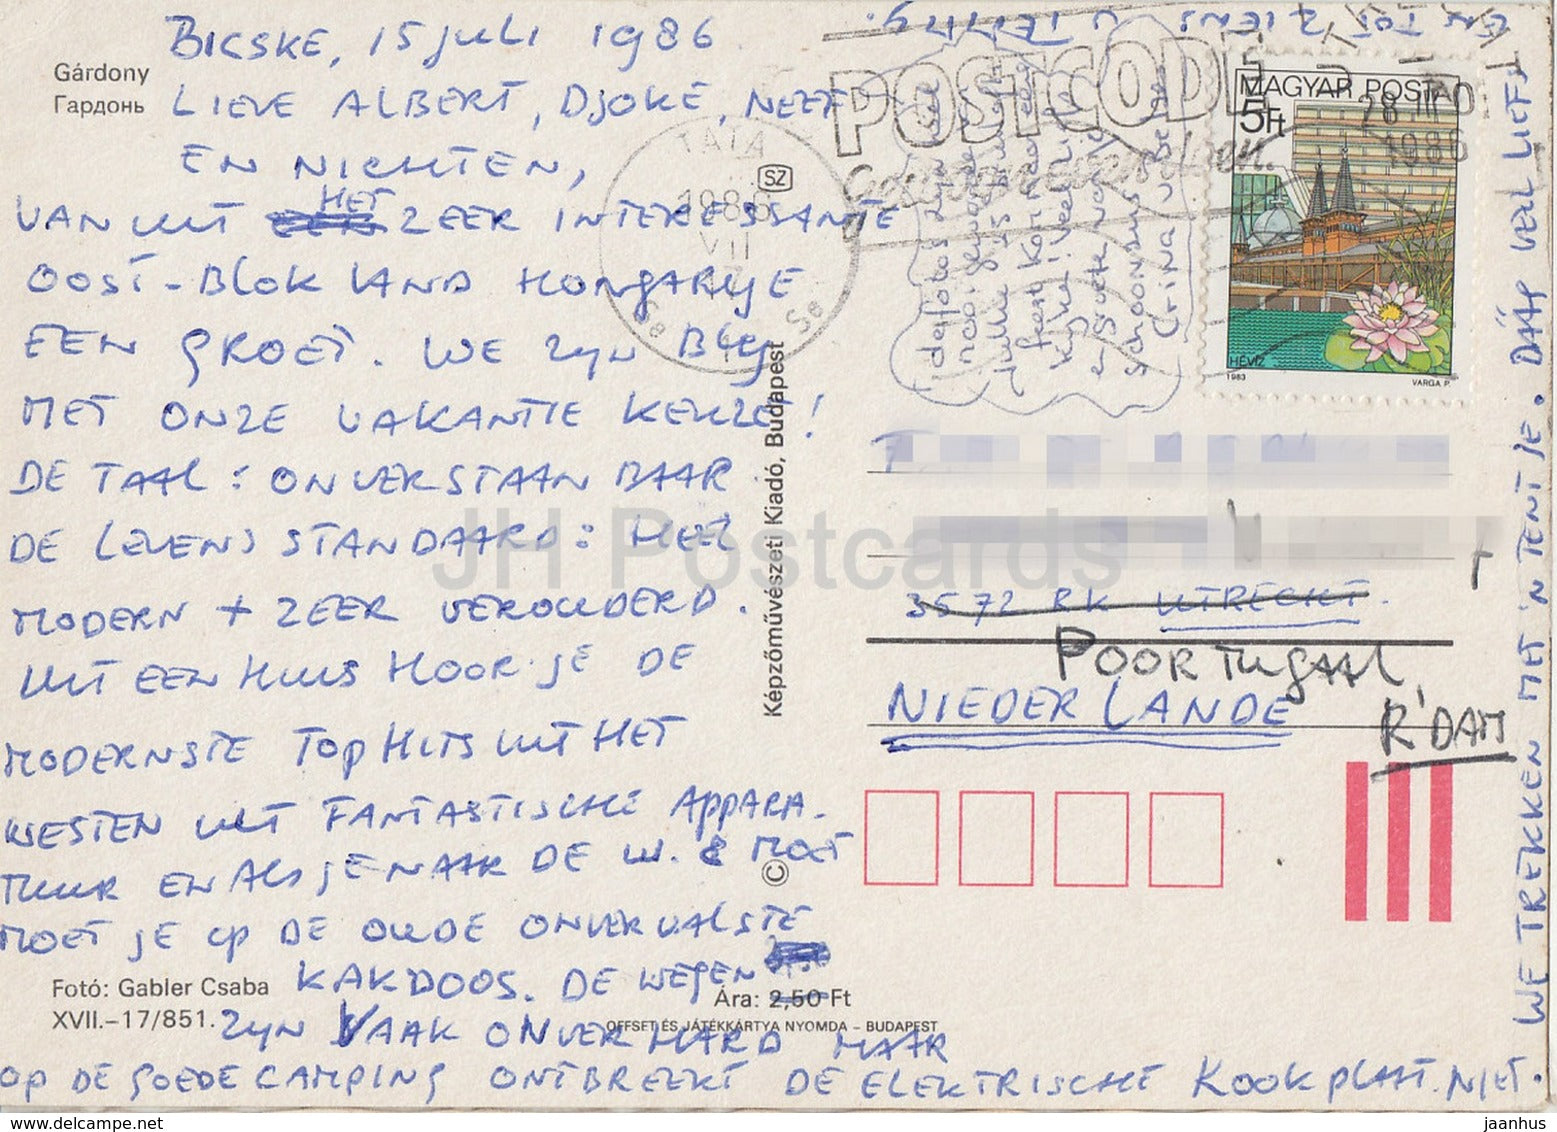 BICSKE, 15 juli 1986
Gárdony
Гардонь
LIEVE ALBERT, DJOKE, NEEF
EN NICHTEN,
VANUIT HET ZEER INTERESSANTE
OOST-BLOKLAND HONGARIJE
EEN GROET. WE ZIJN BLIJ
MET ONZE VAKANTIE KEUZE!
DE TAAL: ONVERSTAANBAAR
DE LEVENSSTANDAARD: HEEL
MODERN + ZEER VEROUDERD.
UIT EEN HUIS HOOR JE DE
MODERNSTE TOPHITS UIT HET
WESTEN UIT FANTASTISCHE APPARA-
TUUR EN ALS JE NAAR DE W.C MOET
MOET JE OP DE OUDE ONVERVALSTE
KAKDOOS. DE WEGEN
ZIJN VAAK ONVERHARD MAAR
OP DE GOEDE CAMPING ONTBREEKT DE ELEKTRISCHE KOOKPLAAT NIET.
WE TREKKEN MET 'N TENTJE. DÁÁG VEEL LIEFS
EN TOT ZIENS
Fotó: Gabler Csaba
XVII.–17/851.
Ára: 2,50 Ft
OFFSET ÉS JÁTÉKKÁRTYA NYOMDA – BUDAPEST
Képzőművészeti Kiadó, Budapest
©
SZ
TATA
1986
VII
POSTCODE
28 III
1986
MAGYAR POSTA
5Ft
HÉVÍZ
1983
VARGA P.
3572 BK UTRECHT.
POORTUGAAL,
R'DAM
NIEDERLANDE
JH Postcards
delcampe.net
jaanhus